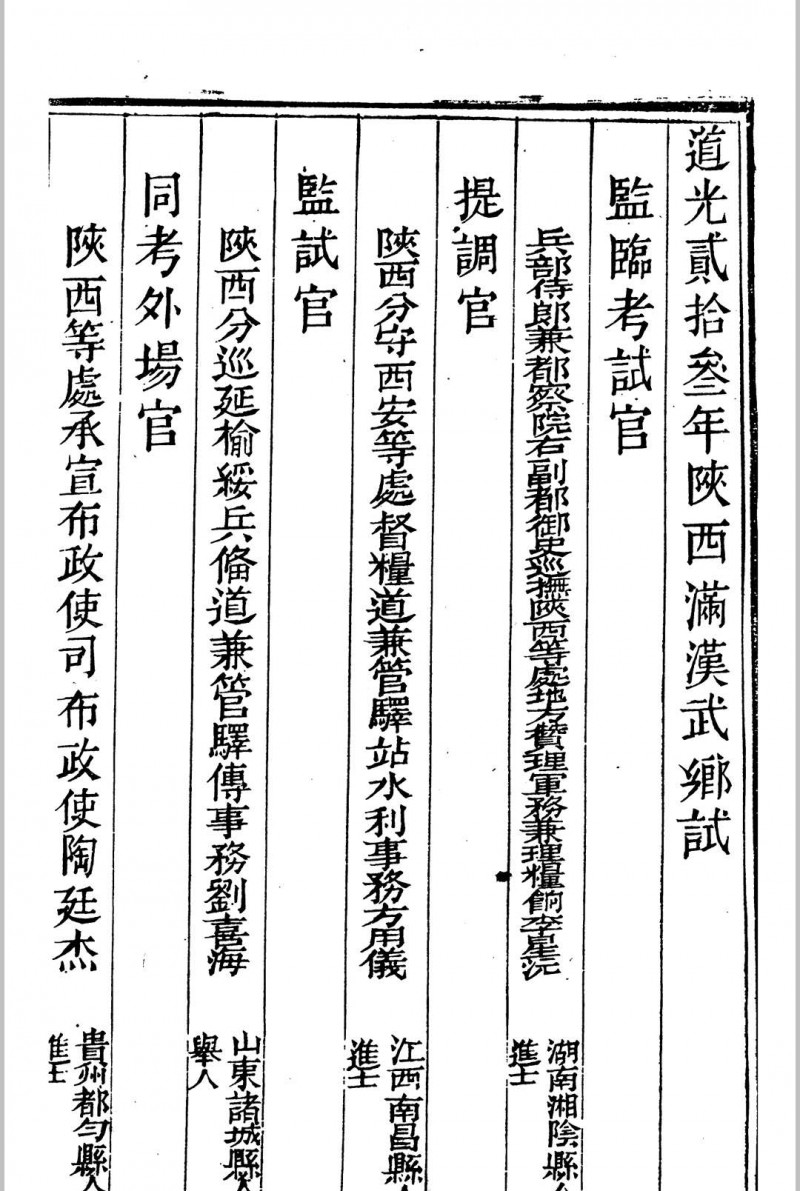 道光貳拾叁年陝西滿漢武鄉試
監臨考試官
兵部侍郎兼都察院右副都御史巡撫陝西等處地方贊理軍務兼理糧餉李星沅
湖南湘陰縣人
進士
提調官
陝西分守西安等處督糧道兼管驛站水利事務方用儀
江西南昌縣人
進士
監試官
陝西分巡延榆綏兵備道兼管驛傳事務劉喜海
山東諸城縣人
舉人
同考外場官
陝西等處承宣布政使司布政使陶廷杰
貴州都勻縣人
進士